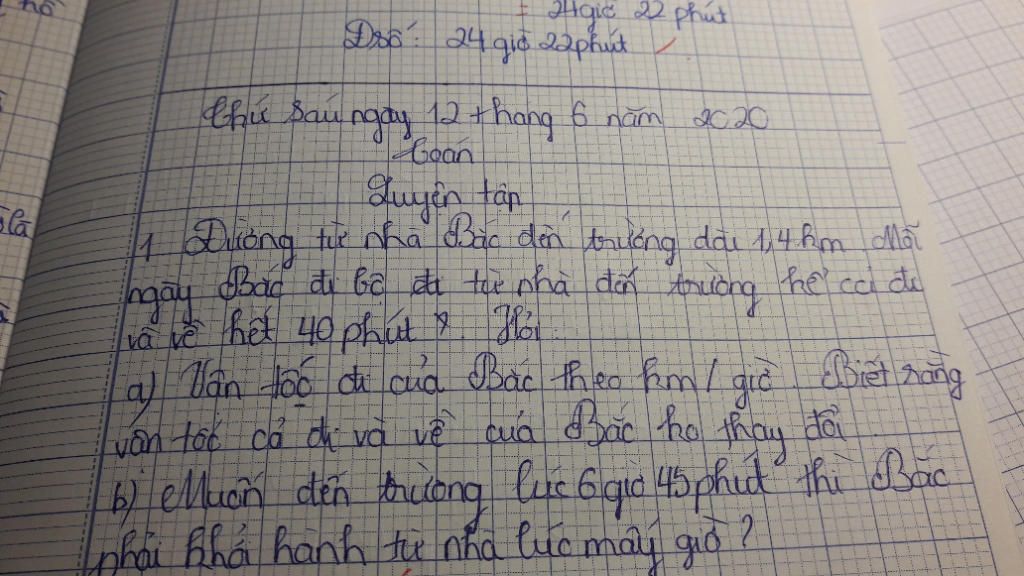 hồ
= 24 giờ 22 phút
Đsố: 24 giờ 22 phút
Thứ sáu ngày 12 tháng 6 năm 2020
Toán
Luyện tập
1 Đường từ nhà Bắc đến trường dài 1,4 km Mỗi
ngày Bắc đi bộ đi từ nhà đến trường hế cả đi
và về hết 40 phút. Hỏi
a) Vận tốc đi của Bắc theo km / giờ. Biết rằng
vận tốc cả đi và về của Bắc ko thay đổi
b) Muốn đến trường lúc 6 giờ 45 phút thì Bắc
phải khả hành từ nhà lúc mấy giờ?